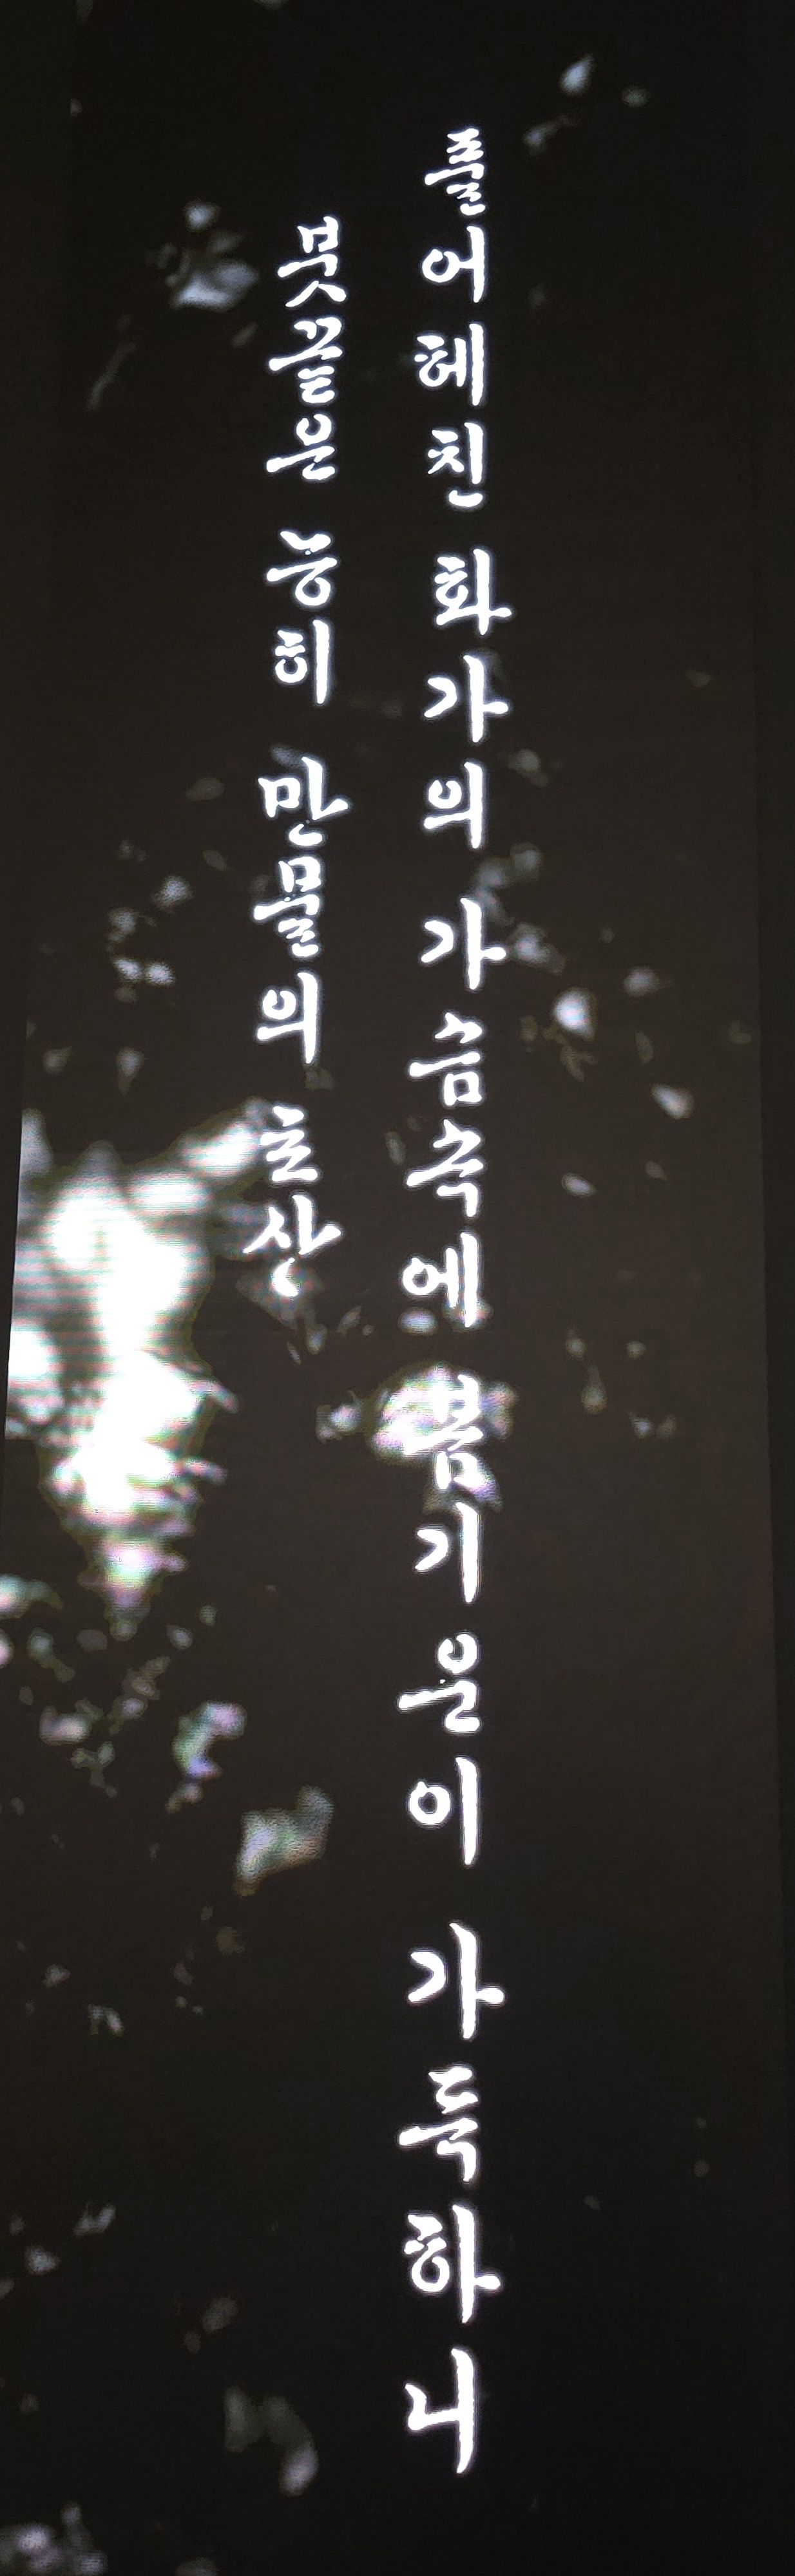 풀어헤친 화가의 가슴속에 봄기운이 가득하니
붓끝은 능히 만물의 초상